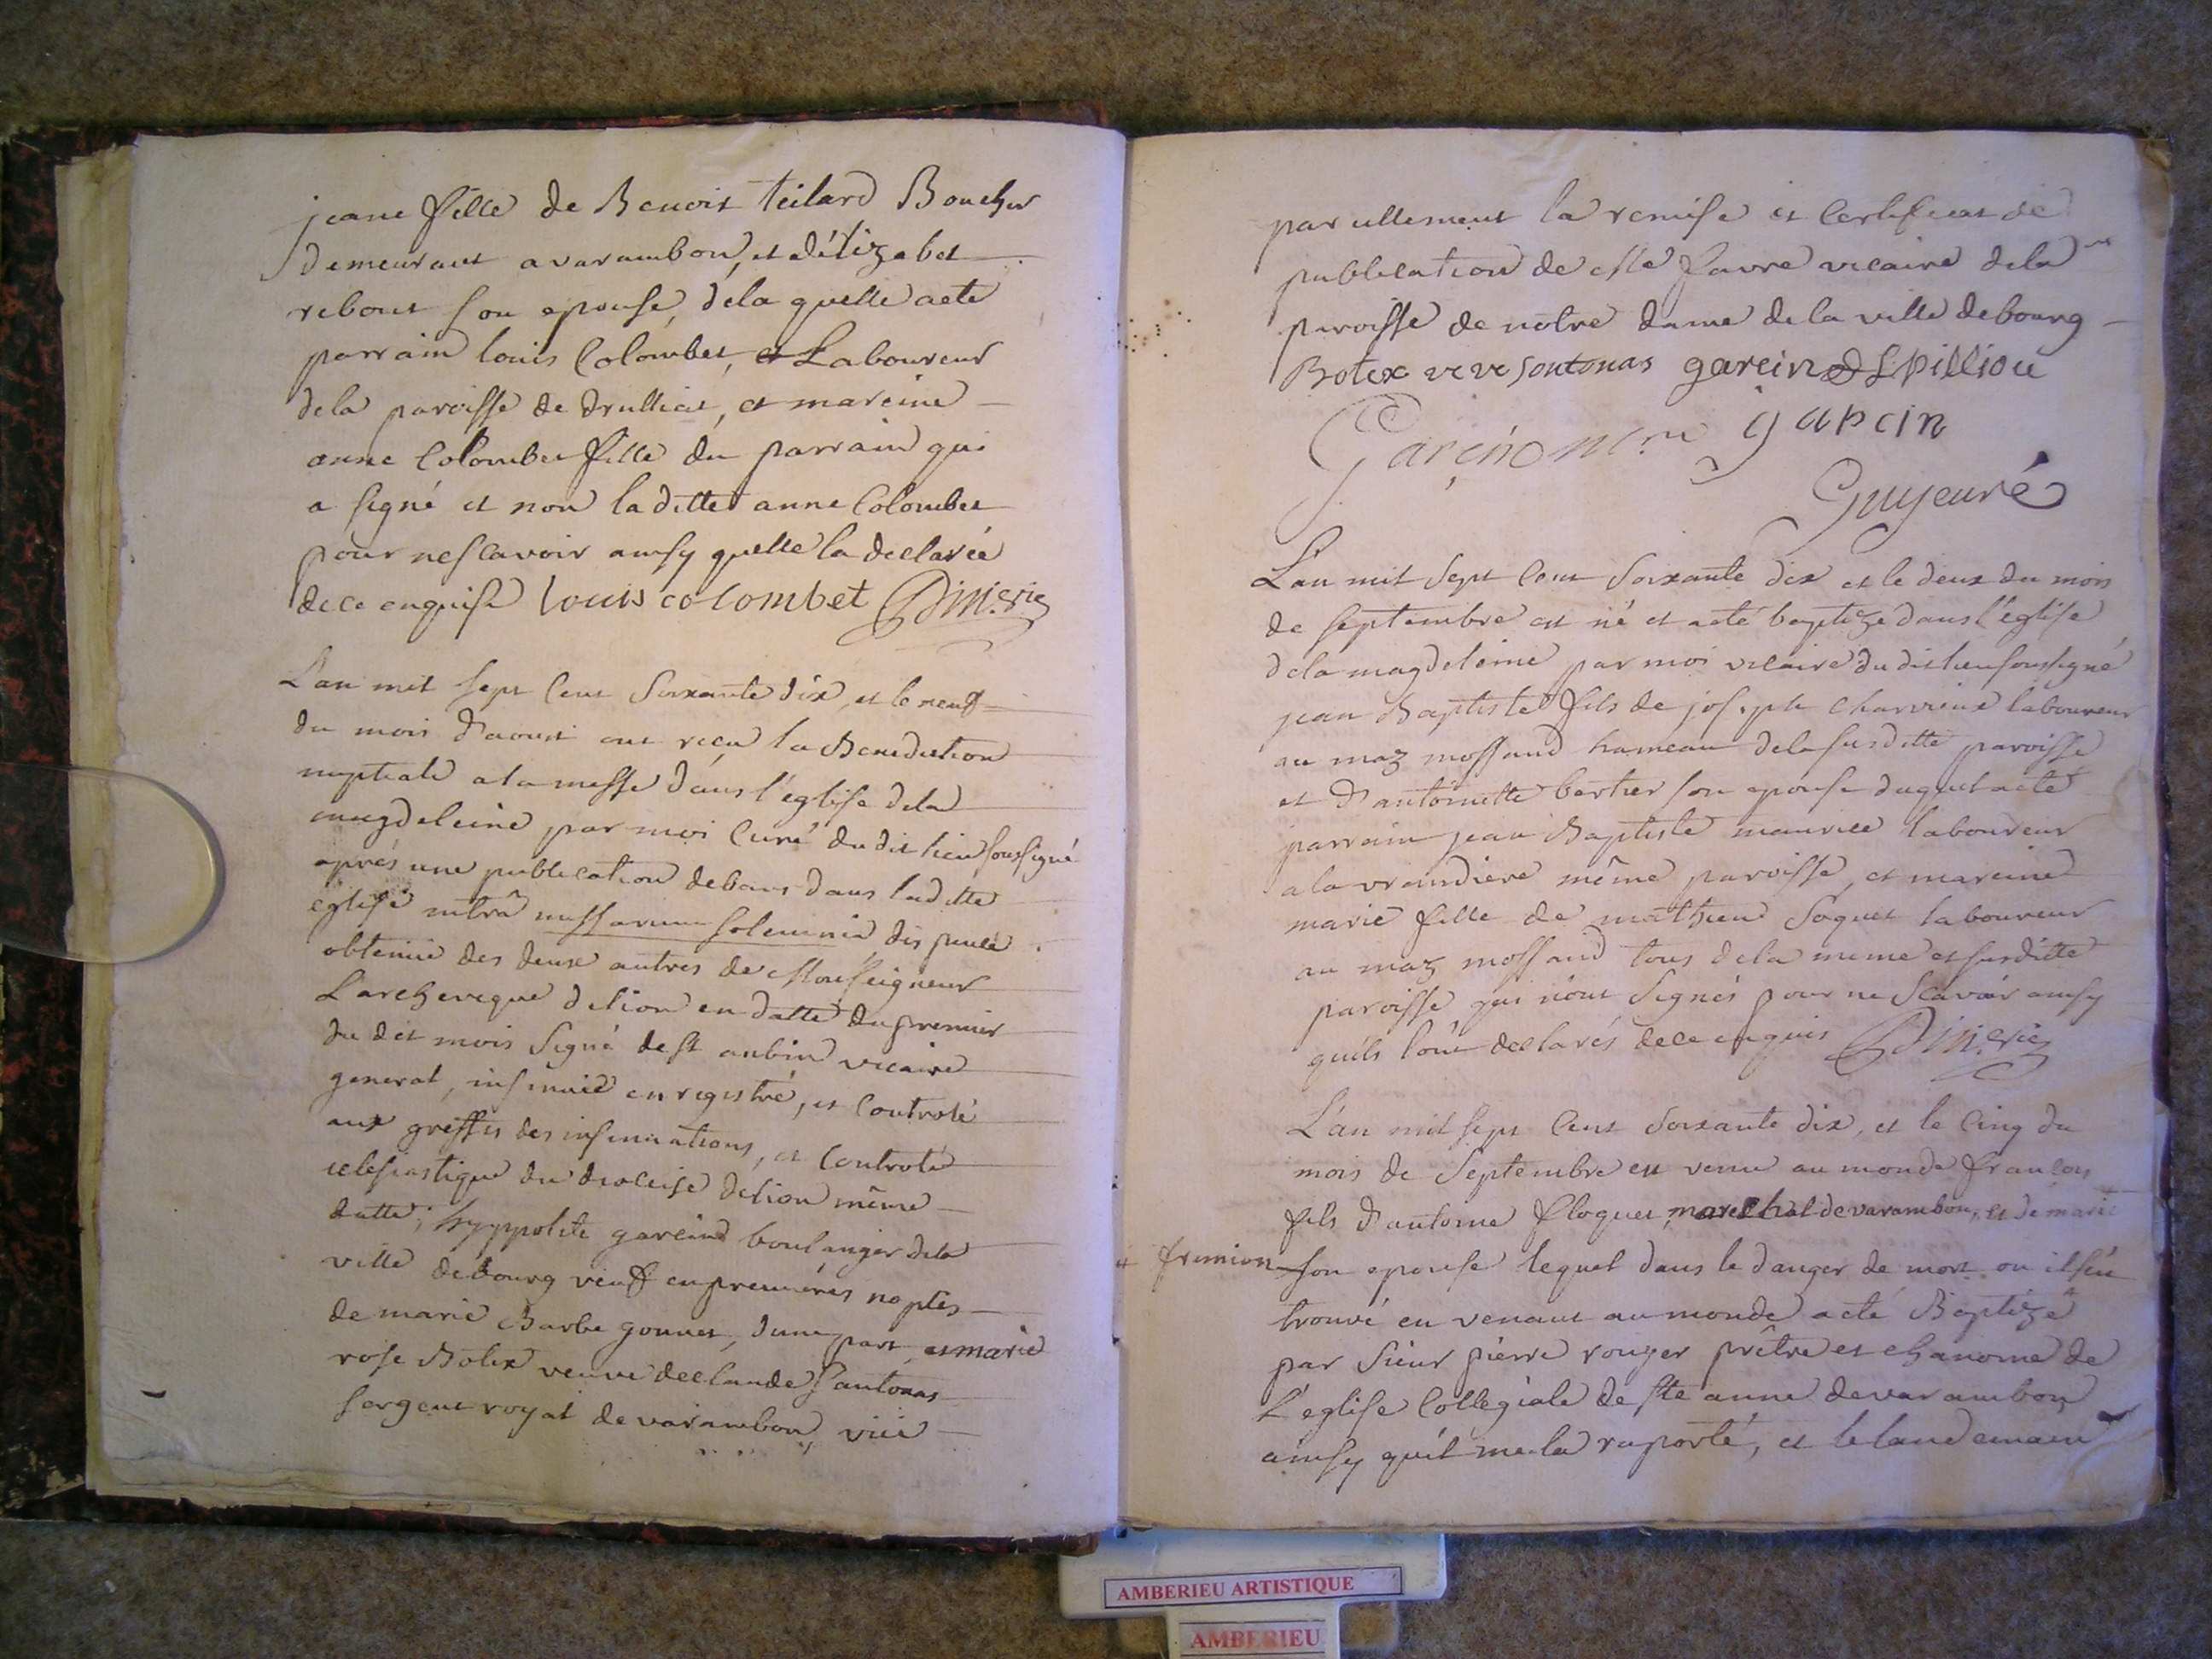 jeane fille de Benoit teilard Boucher
demeurant a varambon, et d'élizabet
rebout son epouse, dela quelle a eté
parrain louis Colombet, Laboureur
dela paroisse de druilliat, et mareine
anne Colombet fille du parrain qui
a signé et non la ditte anne Colombet
pour ne scavoir ainsy quelle la declarée
de ce enquise louis colombet
L'an mil sept cent soixante dix, et le neuf
du mois d'aoust ont reçu la Benediction
nuptiale a la messe dans l'église dela
magdeleine par moi Curé du dit lieu soussigné
aprés une publication de bans dans laditte
église intrâ missarum solemnia dispense
obtenüe des deux autres de Monseigneur
L'archeveque de lion en datte du premier
du dit mois signé de st aubin vicaire
general, insinuée en registré, et Controlé
aux greffes des insinuations, et Controle
eclesiastique du dioceise de lion même
datte; hyppolite garcind boulanger dela
ville de bourg veuf en premiéres noptes
de marie Barbe gonnet, d'une part, et marie
rose Botex veuve de claude santonas
sergent royal de varambon, vüe
pareillement la remise et Certificat de
publication de Mre favre vicaire dela
paroisse de notre dame de la ville de bourg
Botex veve sontonas garcin
garcin
Guy curé
L'an mil sept cent soixante dix et le deux du mois
de septembre est né et a eté baptizé dans l'église
dela magdeleine par moi vicaire du dit lieu soussigné
jean Baptiste fils de joseph Charvieux laboureur
au maz mossand hameau dela susditte paroisse
et d'antoinette bertier son epouse duquel a eté
parrain jean Baptiste maurice laboureur
a la vrandiere même paroisse, et mareine
marie fille de mathieu laboureur
au maz mossand tous dela meme et susditte
paroisse qui n'ont signés pour ne scavoir ainsy
qu'ils l'ont declarés de ce enquis
L'an mil sept cent soixante dix, et le cinq du
mois de septembre est venu au monde françois
fils d'antoine floquet, marechal de varambon, et de marie
+ frimion son epouse lequel dans le danger de mort ou il s'est
trouvé en venant au monde a eté Baptizé
par sieur pierre rouger prêtre et chanoine de
L'eglise Collegiale de ste anne de varambon
ainsy qu'il me la raporté, et le landemain
AMBERIEU ARTISTIQUE
AMBERIEU